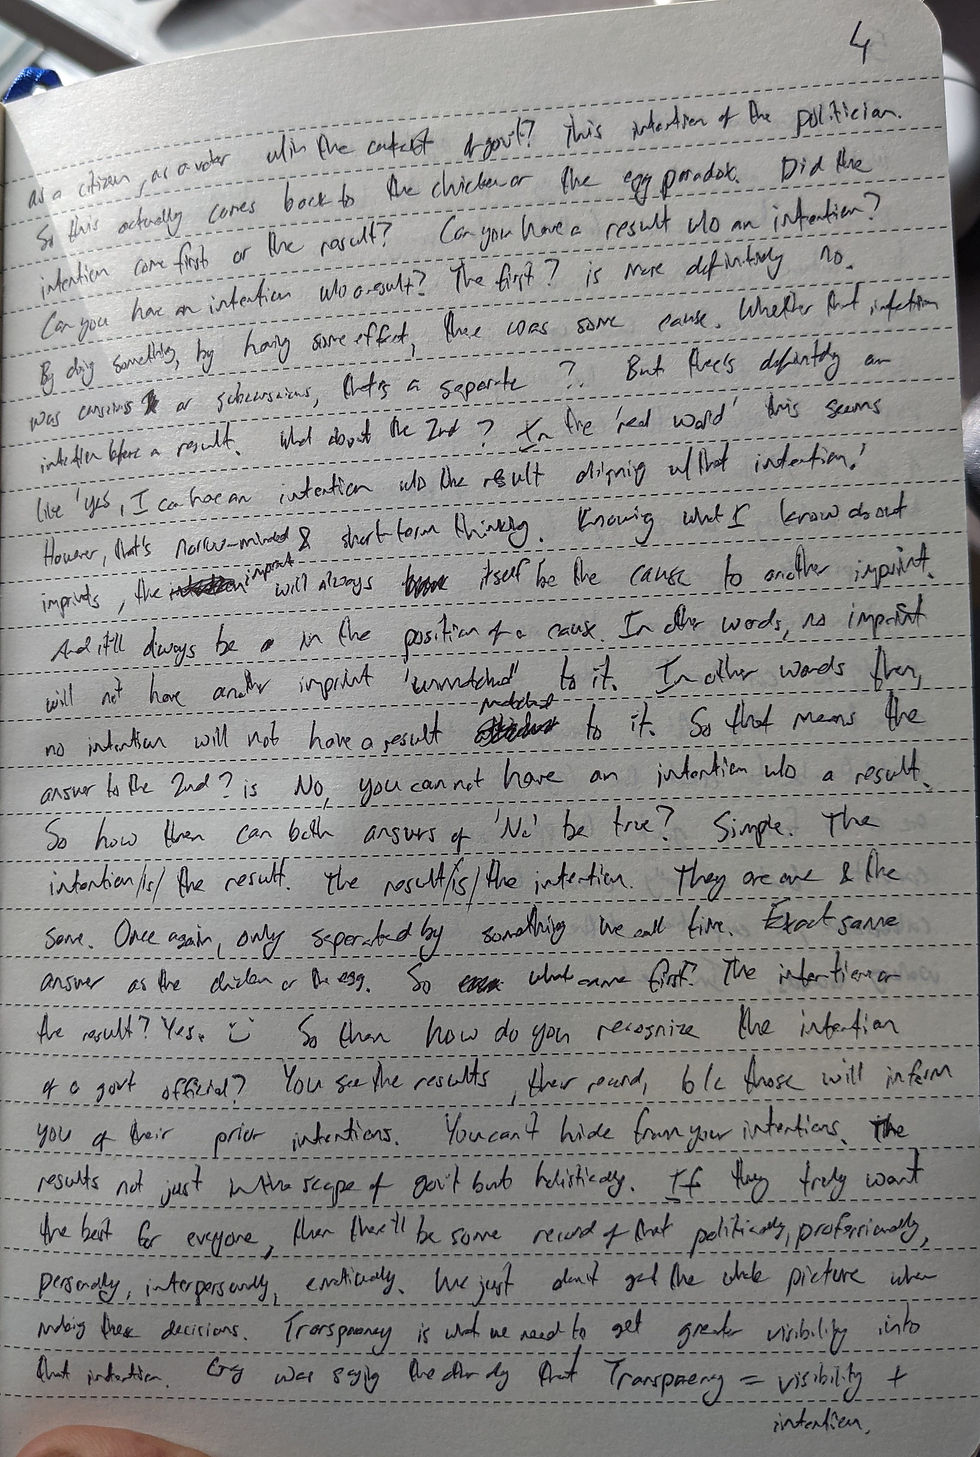 4
as a citizen, as a voter w/in the context of gov't? This intention of the politician.
So this actually comes back to the chicken or the egg paradox. Did the
intention come first or the result? Can you have a result w/o an intention?
Can you have an intention w/o a result? The first ? is more definitively no.
By doing something, by having some effect, there was some cause. Whether that intention
was conscious or subconscious, that's a separate ?. But there's definitely an
intention before a result. What about the 2nd ? In the 'real world' this seems
like 'yes, I can have an intention w/o the result aligning w/ that intention.'
However, that's narrow-minded & short-term thinking. Knowing what I know about
imprints, the imprint will always itself be the cause to another imprint.
And it'll always be in the position of a cause. In other words, no imprint
will not have another imprint "unmatched" to it. In other words then,
no intention will not have a result matched to it. So that means the
answer to the 2nd ? is No, you cannot have an intention w/o a result.
So how then can both answers of 'No' be true? Simple. The
intention /is/ the result. The result /is/ the intention. They are one & the
same. Once again, only separated by something we call time. Exact same
answer as the chicken or the egg. So what came first? The intention or
the result? Yes. :) So then how do you recognize the intention
of a govt official? You see the results, their record, b/c those will inform
you of their prior intentions. You can't hide from your intentions. The
results not just in the scope of gov't but holistically. If they truly want
the best for everyone, then there'll be some record of that politically, professionally,
personally, interpersonally, emotionally. We just don't get the whole picture when
making these decisions. Transparency is what we need to get greater visibility into
that intention. was saying the other day that Transparency = visibility +
intention.